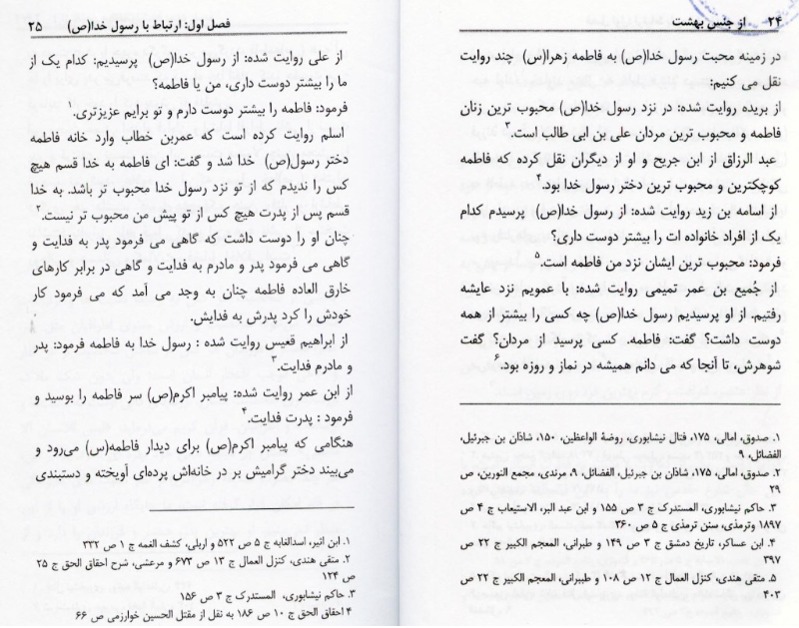 ۲۴ از جنس بهشت
در زمینه محبت رسول خدا(ص) به فاطمه زهرا(س) چند روایت
نقل می کنیم:
از بریده روایت شده: در نزد رسول خدا(ص) محبوب ترین زنان
فاطمه و محبوب ترین مردان علی بن ابی طالب است.۳
عبد الرزاق از ابن جریح و او از دیگران نقل کرده که فاطمه
کوچکترین و محبوب ترین دختر رسول خدا بود.۴
از اسامه بن زید روایت شده: از رسول خدا(ص) پرسیدم کدام
یک از افراد خانواده ات را بیشتر دوست داری؟
فرمود: محبوب ترین ایشان نزد من فاطمه است.۵
از جُمیع بن عمر تمیمی روایت شده: با عمویم نزد عایشه
رفتیم. از او پرسیدیم رسول خدا(ص) چه کسی را بیشتر از همه
دوست داشت؟ گفت: فاطمه. کسی پرسید از مردان؟ گفت
شوهرش، تا آنجا که می دانم همیشه در نماز و روزه بود.۶
۱. صدوق، امالی، ۱۷۵، فتال نیشابوری، روضة الواعظین، ۱۵۰، شاذان بن جبرئیل،
الفضائل، ۹.
۲. صدوق، امالی، ۱۷۵، شاذان بن جبرئیل، الفضائل، ۹. مرندی، مجمع النورین، ص
۲۹
۳. حاکم نیشابوری، المستدرک ج ۳ ص ۱۵۵ و ابن عبد البر، الاستیعاب ج ۴ ص
۱۸۹۷ وترمذی، سنن ترمذی ج ۵ ص ۳۶۰
۴. ابن عساکر، تاریخ دمشق ج ۳ ص ۱۴۹ و طبرانی، المعجم الکبیر ج ۲۲ ص
۳۹۷
۵. متقی هندی، کنزل العمال ج ۱۲ ص ۱۰۸ و طبیرانی، المعجم الکبیر ج ۲۲ ص
۴۰۳
فصل اول: ارتباط با رسول خدا(ص) ۲۵
از علی روایت شده: از رسول خدا(ص) پرسیدیم: کدام یک از
ما را بیشتر دوست داری، من یا فاطمه؟
فرمود: فاطمه را بیشتر دوست دارم و تو برایم عزیزتری.۱
اسلم روایت کرده است که عمربن خطاب وارد خانه فاطمه
دختر رسول(ص) خدا شد و گفت: ای فاطمه به خدا قسم هیچ
کس را ندیدم که از تو نزد رسول خدا محبوب تر باشد. به خدا
قسم پس از پدرت هیچ کس از تو پیش من محبوب تر نیست.۲
چنان او را دوست داشت که گاهی می فرمود پدر به فدایت و
گاهی می فرمود پدر و مادرم به فدایت و گاهی در برابر کارهای
خارق العاده فاطمه چنان به وجد می آمد که می فرمود کار
خودش را کرد پدرش به فدایش.
از ابراهیم قعیس روایت شده : رسول خدا به فاطمه فرمود: پدر
و مادرم فدایت.۳
از ابن عمر روایت شده: پیامبر اکرم(ص) سر فاطمه را بوسید و
فرمود : پدرت فدایت.۴
هنگامی که پیامبر اکرم(ص) برای دیدار فاطمه(س) می‌رود و
می‌بیند دختر گرامیش بر در خانه‌اش پرده‌ای آویخته و دستبندی
۱. ابن اثیر، اسدالغابه ج ۵ ص ۵۲۲ و اربلی، کشف الغمه ج ۱ ص ۳۳۲
۲. متقی هندی، کنزل العمال ج ۱۳ ص ۶۷۳ و مرعشی، شرح احقاق الحق ج ۲۵
ص ۱۲۴
۳. حاکم نیشابوری، المستدرک ج ۳ ص ۱۵۶
۴ احقاق الحق ج ۱۰ ص ۱۸۶ به نقل از مقتل الحسین خوارزمی ص ۶۶